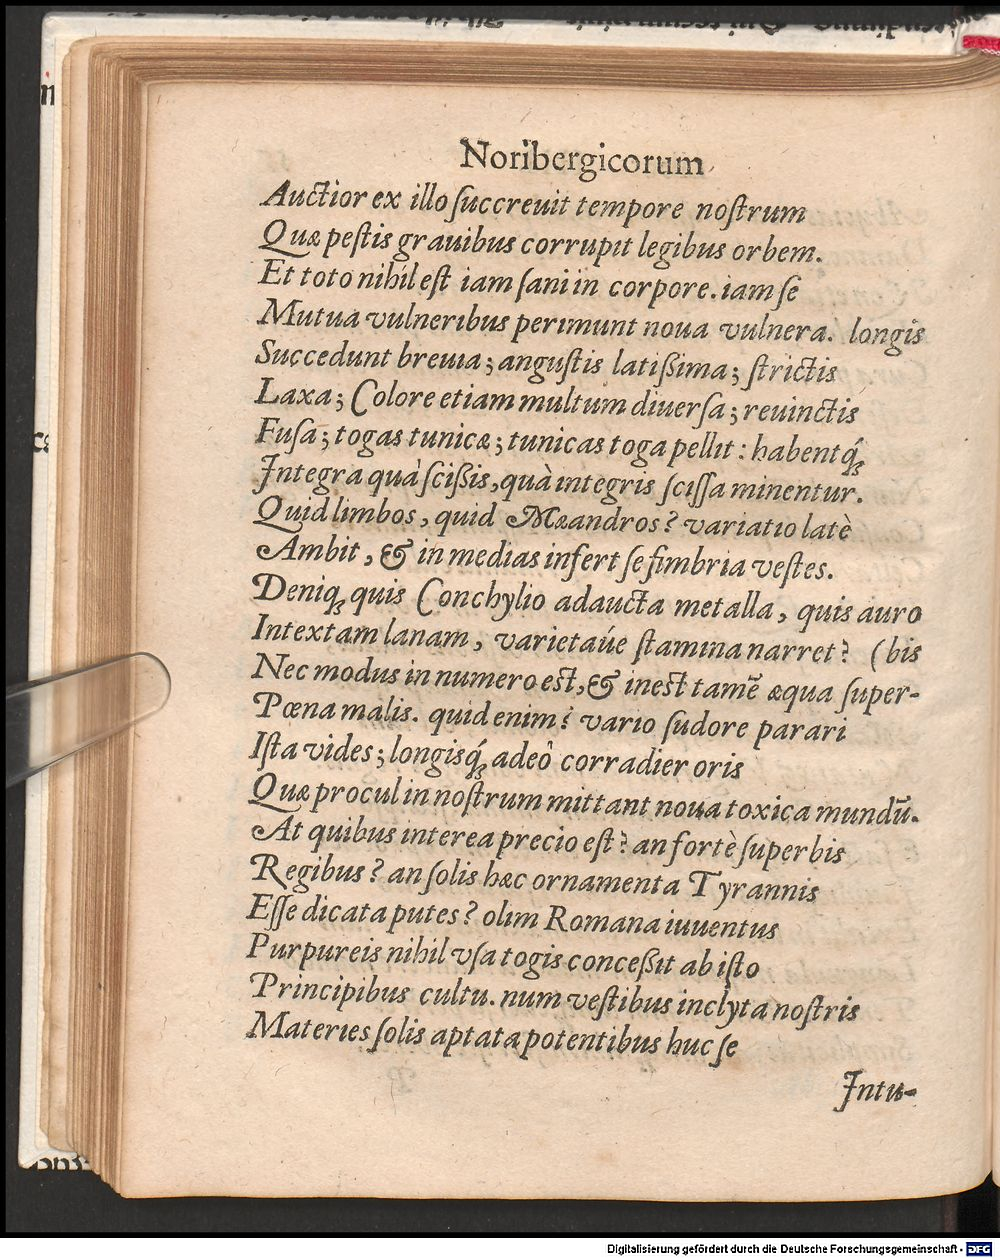 Noribergicorum
Auctior ex illo ſuccreuit tempore noſtrum
Quæ peſtis grauibus corrupit legibus orbem.
Et toto nihil eſt iam ſani in corpore. iam ſe
Mutua vulneribus perimunt noua vulnera. longis
Succedunt breuia; anguſtis latißima; ſtrictis
Laxa; Colore etiam multum diuerſa; reuinctis
Fuſa; togas tunicæ; tunicas toga pellit: habentq́;
Integra quà ſcißis, quà integris ſciſſa minentur.
Quid limbos, quid Mæandros? variatio latè
Ambit, & in medias infert ſe fimbria veſtes.
Deniq; quis Conchylio adaucta metalla, quis auro
Intextam lanam, varietaúe ſtamina narret? (bis
Nec modus in numero est, & inest tamẽ æqua ſuper-
Pœna malis. quid enim? vario ſudore parari
Iſta vides; longisq́; adeò corradier oris
Quæ procul in noſtrum mittant noua toxica mundũ.
At quibus interea precio eſt? an fortè ſuperbis
Regibus? an ſolis hæc ornamenta Tyrannis
Eſſe dicata putes? olim Romana iuuentus
Purpureis nihil vſa togis conceßit ab iſto
Principibus cultu. num veſtibus inclyta noſtris
Materies ſolis aptata potentibus huc ſe
Intu-
Digitalisierung gefördert durch die Deutsche Forschungsgemeinschaft - DFG